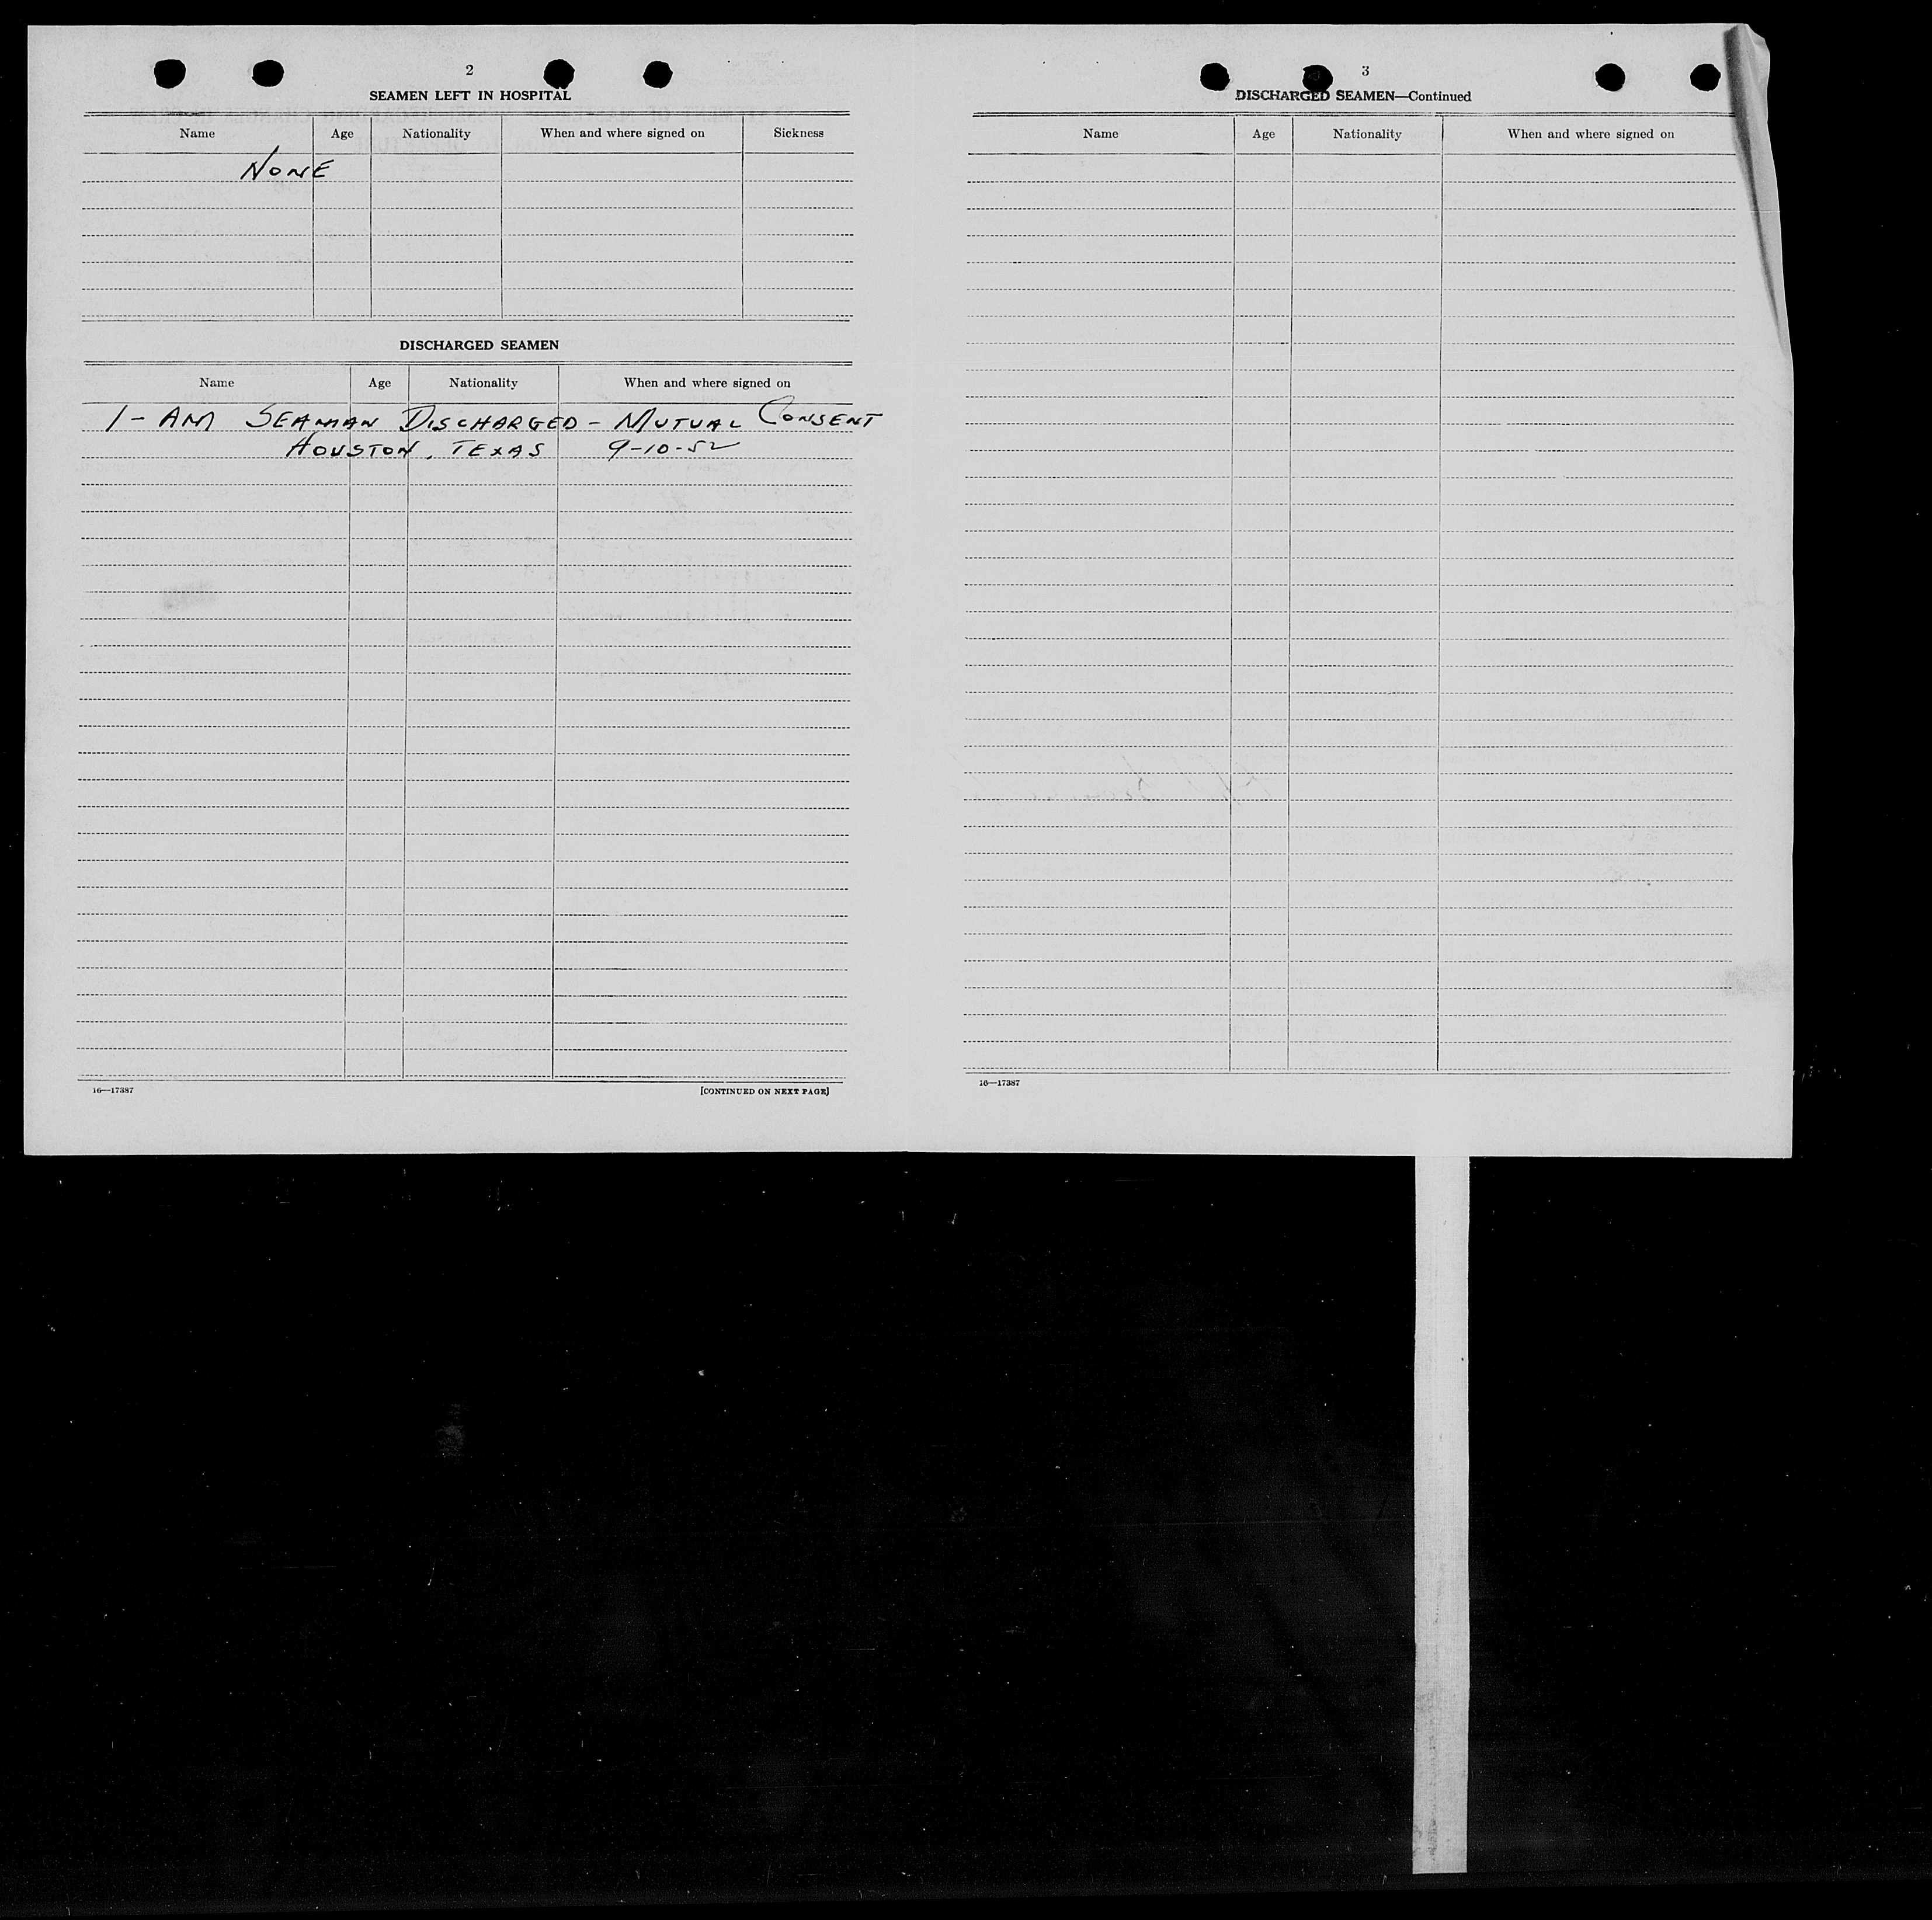 2
SEAMEN LEFT IN HOSPITAL
Name Age Nationality When and where signed on Sickness
NONE
DISCHARGED SEAMEN
Name Age Nationality When and where signed on
1 - AM SEAMAN DISCHARGED - MUTUAL CONSENT
HOUSTON, TEXAS 9-10-52
16—17387 [CONTINUED ON NEXT PAGE]
3
DISCHARGED SEAMEN—Continued
Name Age Nationality When and where signed on
16—17387